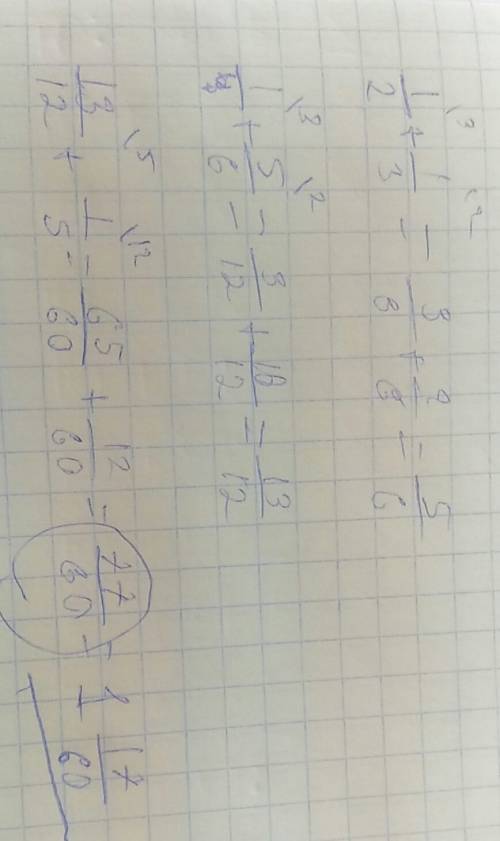 1/2 \3 + 1/3 \2 = 3/6 + 2/6 = 5/6
1/4 \3 + 5/6 \2 = 3/12 + 10/12 = 13/12
13/12 \5 + 1/5 \12 = 65/60 + 12/60 = 77/60 = 1 17/60